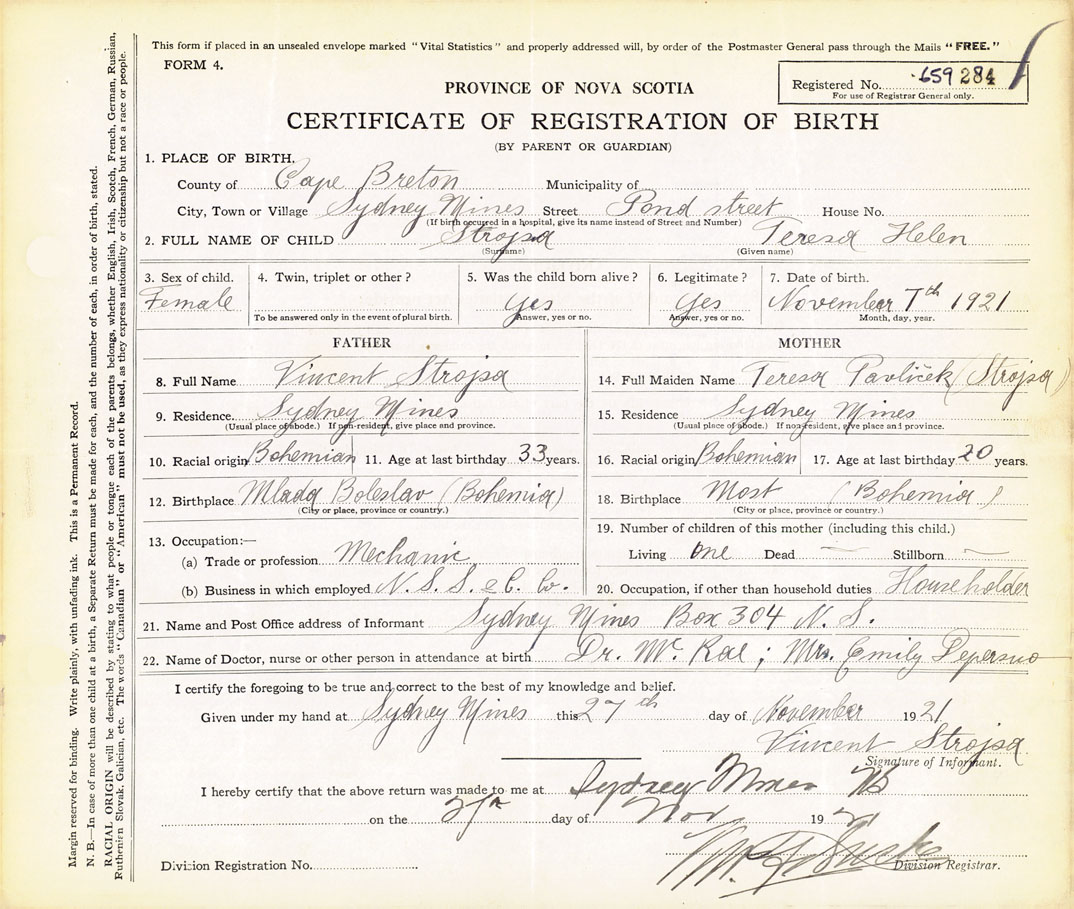 This form if placed in an unsealed envelope marked "Vital Statistics" and properly addressed will, by order of the Postmaster General pass through the Mails "FREE."
FORM 4.
Registered No. 659284
For use of Registrar General only.
PROVINCE OF NOVA SCOTIA
CERTIFICATE OF REGISTRATION OF BIRTH
(BY PARENT OR GUARDIAN)
1. PLACE OF BIRTH.
County of Cape Breton Municipality of
City, Town or Village Sydney Mines Street Pond street House No.
(If birth occurred in a hospital, give its name instead of Street and Number)
2. FULL NAME OF CHILD Strojsa Teresa Helen
(Surname) (Given name)
3. Sex of child. 4. Twin, triplet or other? 5. Was the child born alive? 6. Legitimate? 7. Date of birth.
Female Yes Yes November 7th 1921
To be answered only in the event of plural birth. Answer, yes or no. Answer, yes or no. Month, day, year.
FATHER
8. Full Name Vincent Strojsa
9. Residence. Sydney Mines
(Usual place of abode.) If non-resident, give place and province.
10. Racial origin Bohemian 11. Age at last birthday 33 years.
12. Birthplace Mlada Boleslav (Bohemia)
(City or place, province or country.)
13. Occupation:—
(a) Trade or profession Mechanic
(b) Business in which employed N. S. S. & C. Co.
MOTHER
14. Full Maiden Name Teresa Pavliček (Strojsa)
15. Residence Sydney Mines
(Usual place of abode.) If non-resident, give place and province.
16. Racial origin Bohemian 17. Age at last birthday 20 years.
18. Birthplace Most (Bohemia)
(City or place, province or country.)
19. Number of children of this mother (including this child.)
Living One Dead — Stillborn —
20. Occupation, if other than household duties Householder
21. Name and Post Office address of Informant Sydney Mines Box 304 N. S.
22. Name of Doctor, nurse or other person in attendance at birth Dr. Mc. Rae; Mrs. Emily
I certify the foregoing to be true and correct to the best of my knowledge and belief.
Given under my hand at Sydney Mines this 27th day of November 1921
Vincent Strojsa
Signature of Informant.
I hereby certify that the above return was made to me at Sydney Mines NS
on the day of Nov 1921
Division Registration No. Division Registrar.
Margin reserved for binding. Write plainly, with unfading ink. This is a Permanent Record.
N. B.—In case of more than one child at a birth, a Separate Return must be made for each, and the number of each, in order of birth, stated.
RACIAL ORIGIN will be described by stating to what people or tongue each of the parents belongs, whether English, Irish, Scotch, French, German, Russian,
Ruthenian Slovak, Galician, etc. The words "Canadian" or "American" must not be used, as they express nationality or citizenship but not a race or people.